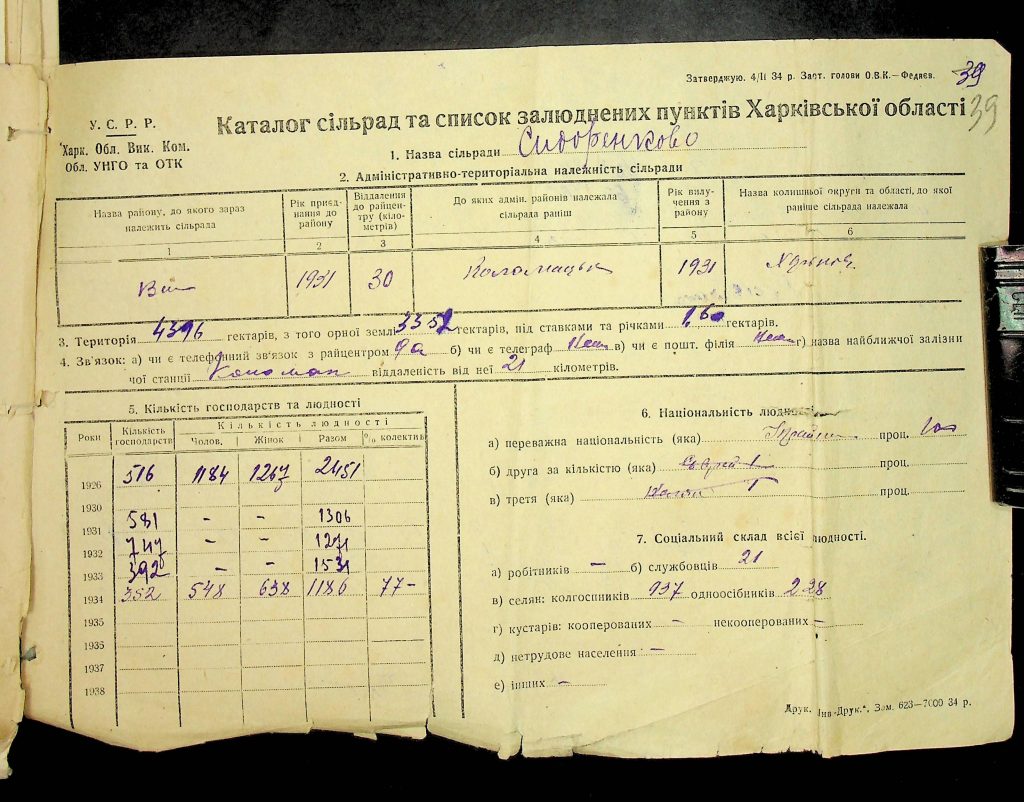 Затверджую. 4/II 34 р. Заст. голови О.В.К.—Федяєв.
39
39
У. С. Р. Р.
Харк. Обл. Вик. Ком.
Обл. УНГО та ОТК
Каталог сільрад та список залюднених пунктів Харківської області
1. Назва сільради Сидоренково
2. Адміністративно-територіальна належність сільради
Назва району, до якого зараз належить сільрада | Рік приєднання до району | Віддалення до райцентру (кілометрів) | До яких адмін. районів належала сільрада раніш | Рік вилучення з району | Назва колишньої округи та області, до якої раніше сільрада належала
1 | 2 | 3 | 4 | 5 | 6
1931 | 30 | Коломацьк | 1931
3. Територія 4396 гектарів, з того орної землі 3352 гектарів, під ставками та річками 1,60 гектарів.
4. Зв'язок: а) чи є телефонний зв'язок з райцентром да б) чи є телеграф в) чи є пошт. філія г) назва найближчої залізни
чої станції Коломак віддаленість від неї 21 кілометрів.
5. Кількість господарств та людності
Роки | Кількість господарств | Кількість людності
Чолов. | Жінок | Разом | % колектив
1926 | 516 | 1184 | 1267 | 2451
1930
1931 | 581 | - | - | 1306
1932 | 747 | - | - | 1271
1933 | 392 | - | - | 1531
1934 | 352 | 548 | 638 | 1186 | 77-
1935
1936
1937
1938
6. Національність людності
а) переважна національність (яка) проц.
б) друга за кількістю (яка) проц.
в) третя (яка) проц.
7. Соціальний склад всієї людності.
а) робітників — б) службовців 21
в) селян: колгоспників 937 одноосібників 228
г) кустарів: кооперованих — некооперованих —
д) нетрудове населення —
е) інших —
Друк. „Інв-Друк.“. Зам. 623—7000 34 р.